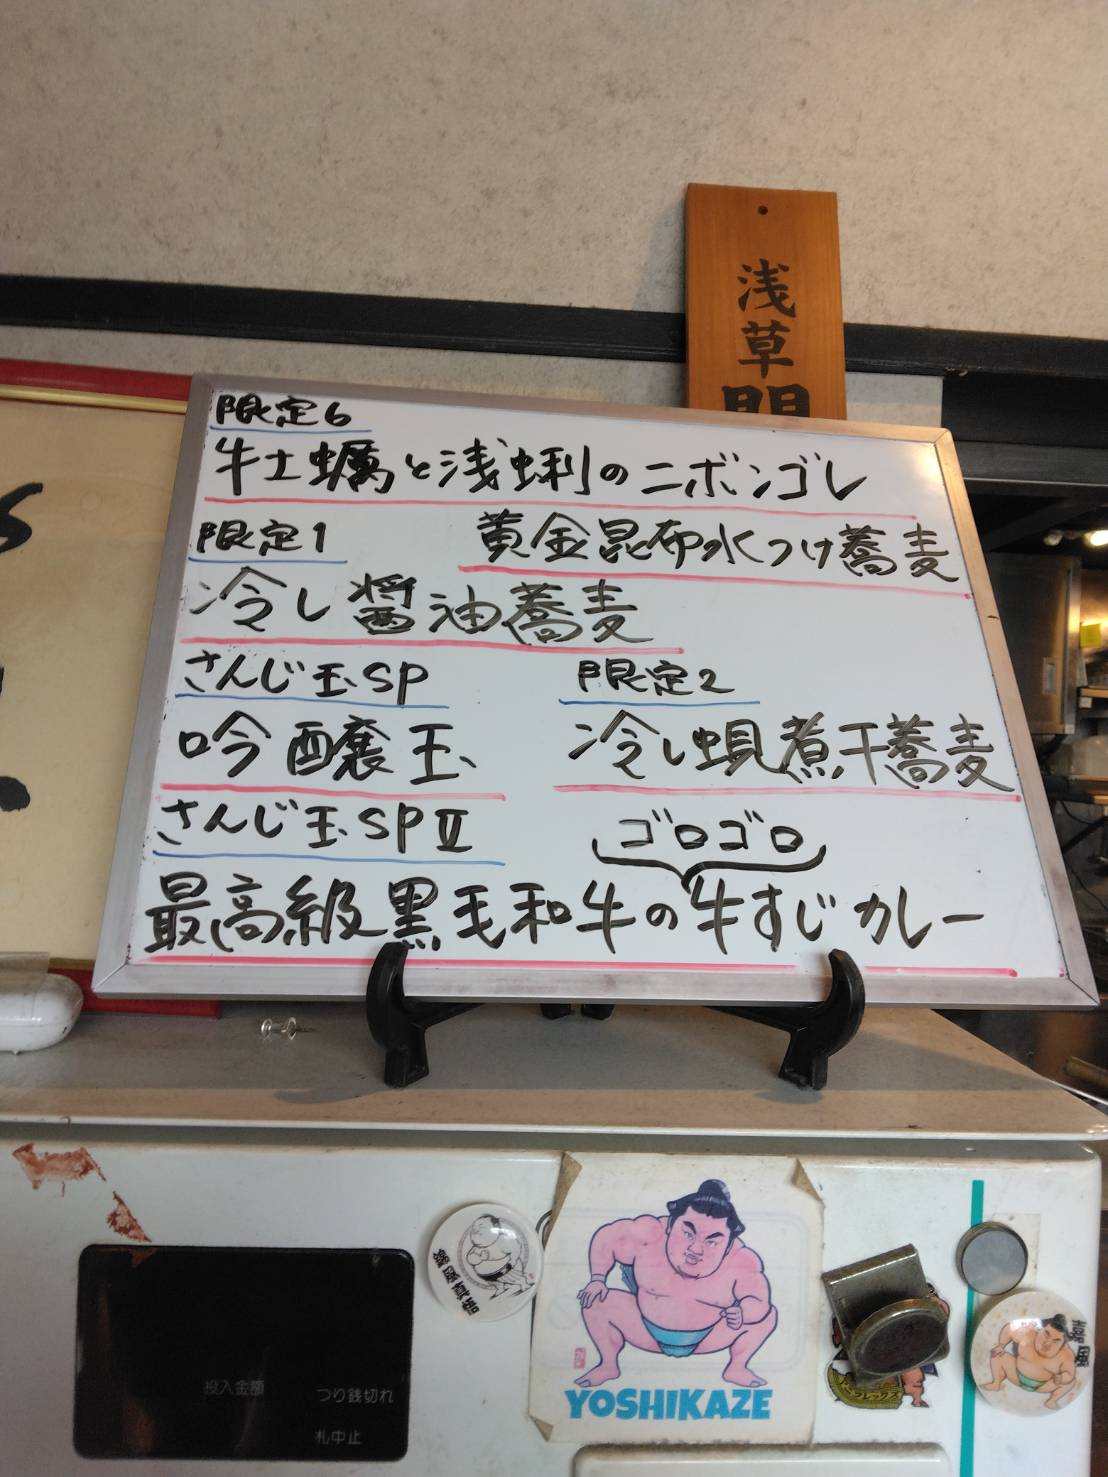 浅草
開
限定6
牡蠣と浅蜊のニボンゴレ
限定1
黄金昆布水つけ蕎麦
冷し醤油蕎麦
さんじ玉SP
限定2
吟醸玉
冷し蜆煮干蕎麦
さんじ玉SPⅡ
ゴロゴロ
最高級黒毛和牛の牛すじカレー
投入金額
つり銭切れ
札中止
YOSHIKAZE